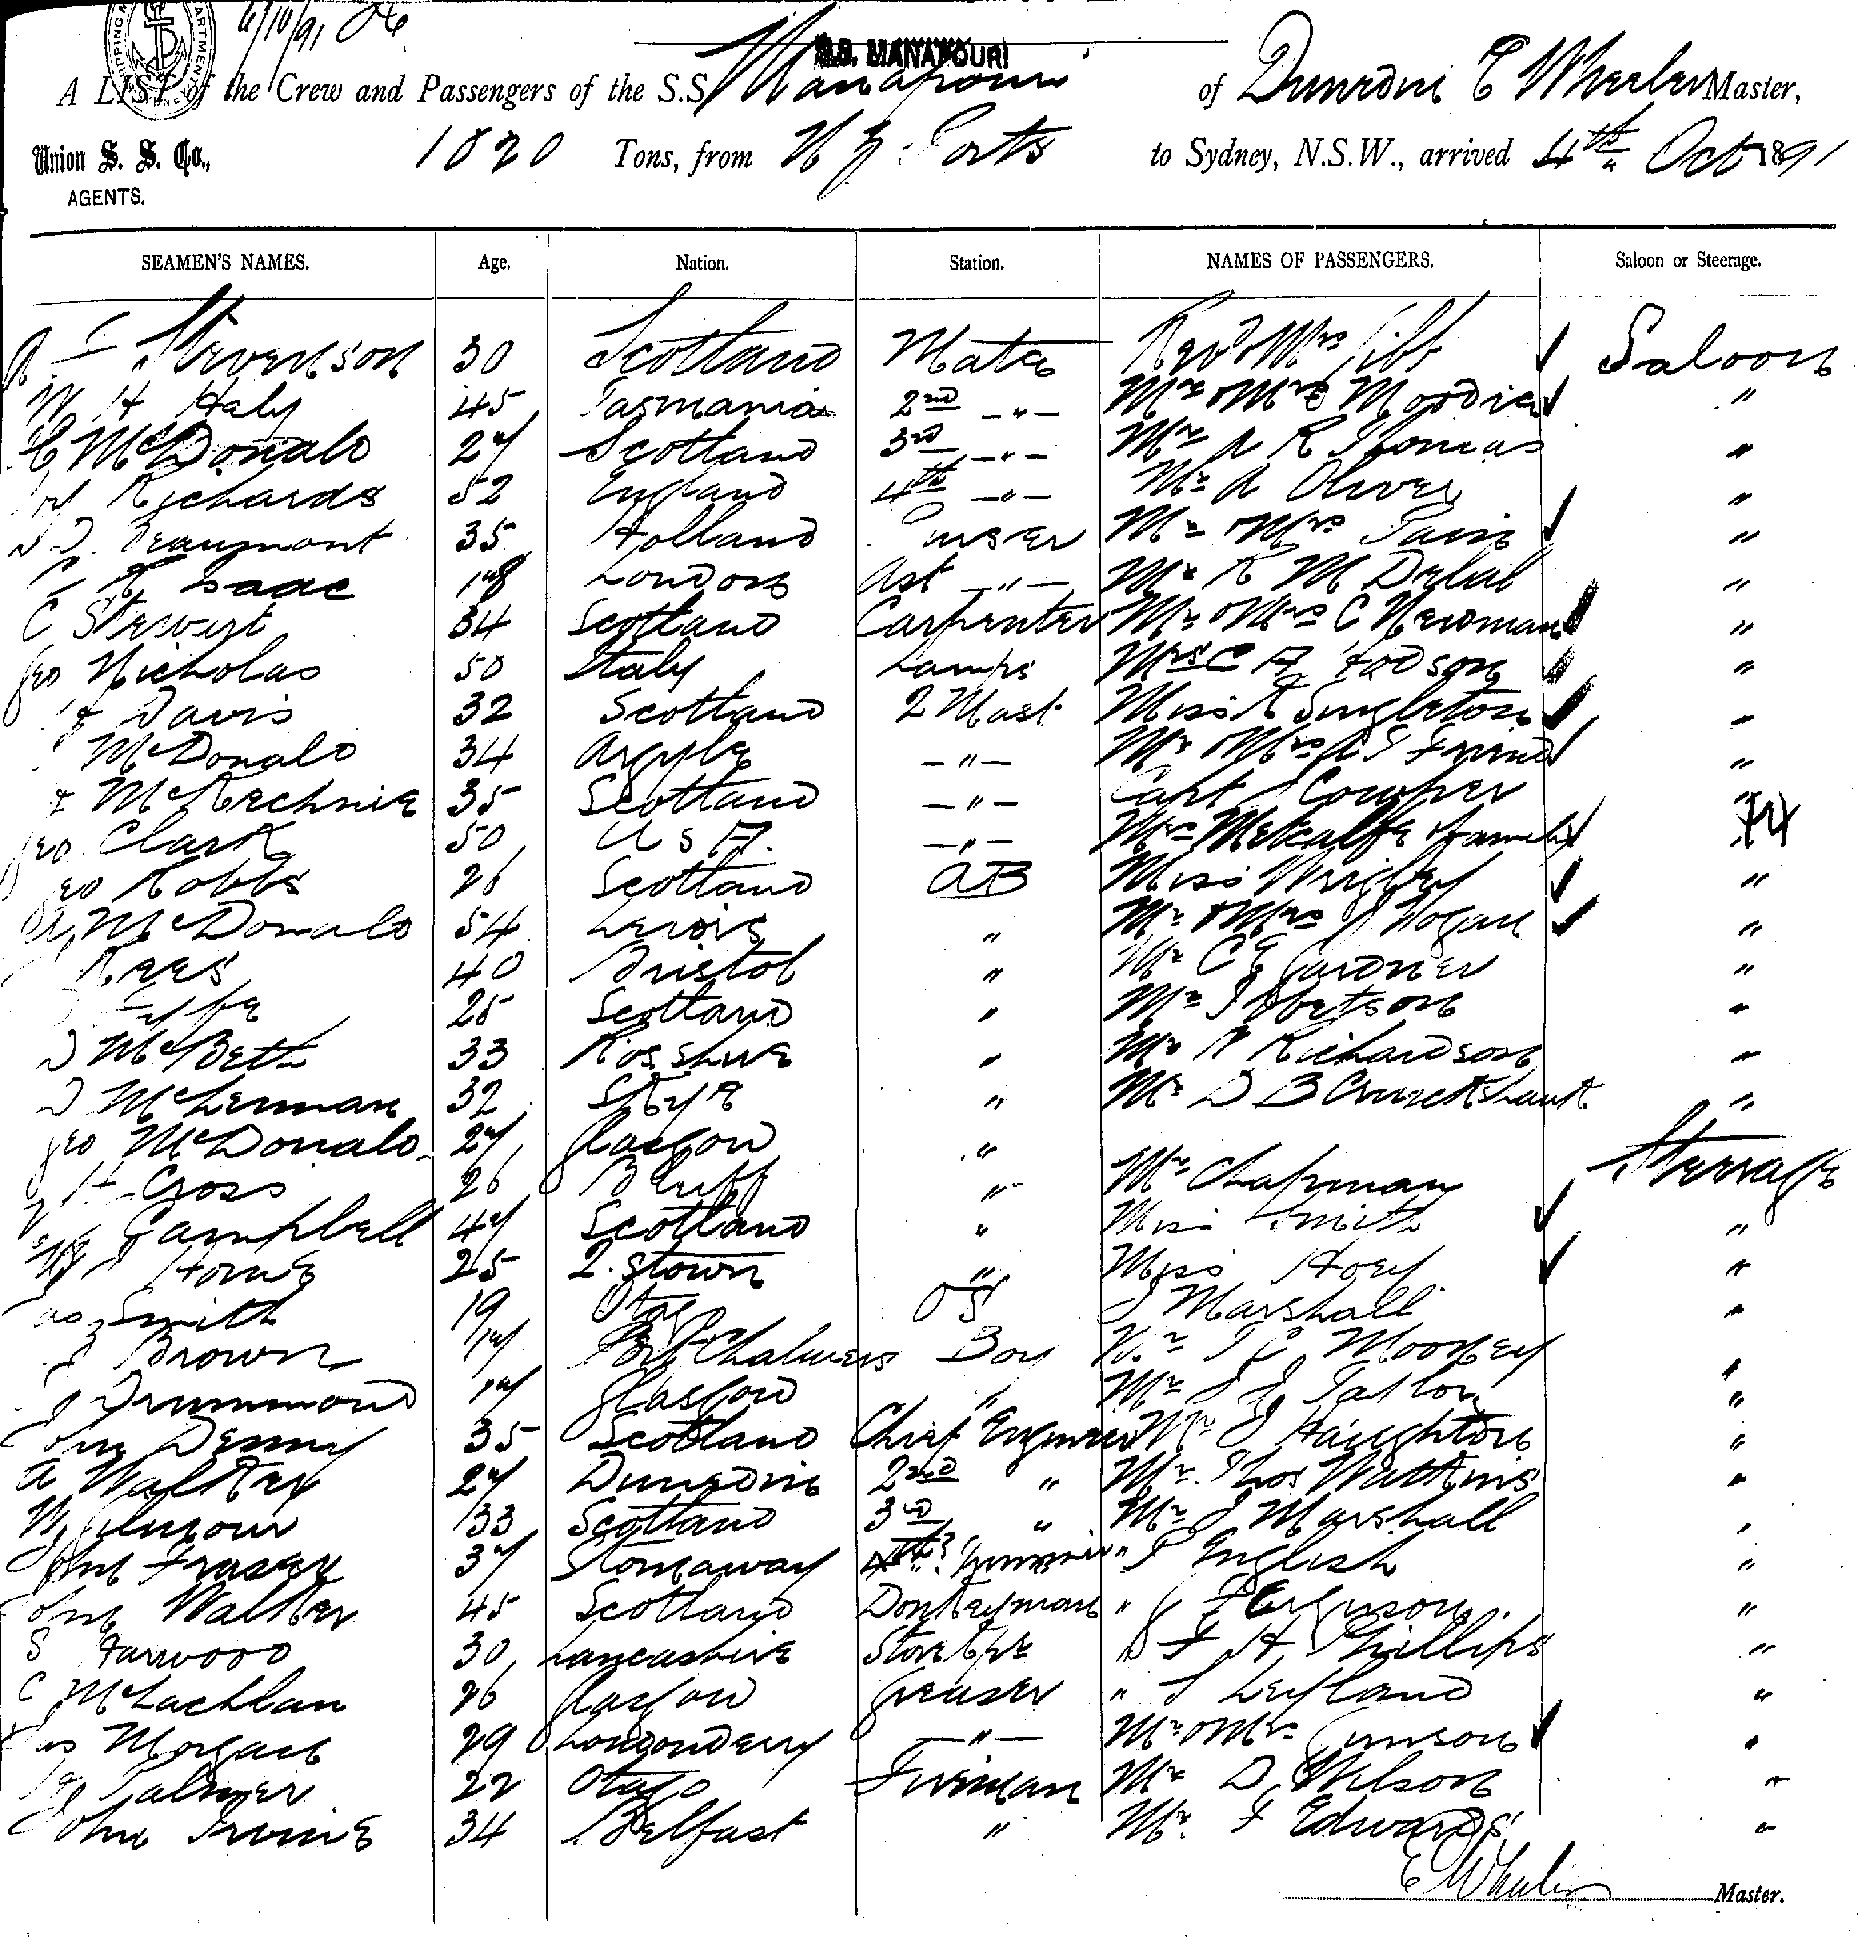 6/10/91
S.S. MANAPOURI
A LIST of the Crew and Passengers of the S.S. Manapouri of Dunedin E Wheeler Master,
Union S. S. Co., 1820 Tons, from N Z Ports to Sydney, N.S.W., arrived 4th Oct 1891
AGENTS.
SEAMEN'S NAMES. Age. Nation. Station. NAMES OF PASSENGERS. Saloon or Steerage.
Stevenson 30 Scotland Mate Revd & Mrs Gibb Saloon
W H Haly 45 Tasmania 2nd -"- Mr & Mrs Moodie "
McDonald 27 Scotland 3rd -"- Mr A R Thomas "
Richards 52 England 4th -"- Mr A Oliver "
Beaumont 35 Holland Purser Mr & Mrs "
Isaac 18 London Ast -"- Mr R M "
C Stewart 34 Scotland Carpenter Mr & Mrs C Newman "
Geo Nicholas 50 Italy Lamps Mrs C A Hodson "
Davis 32 Scotland 2 Mast Miss Singleton "
McDonald 34 Argyle -"- Mr & Mrs "
McKechnie 35 Scotland -"- Capt Cowper "
Geo Clark 50 U S A. -"- Mrs Metcalfe & family
Geo Hobbs 26 Scotland AB Miss Wrigley "
McDonald 54 Lewis " Mr & Mrs J Hogan "
Rees 40 Bristol " Mr C E Gardner "
25 Scotland " Mr Ibbetson "
D McBeth 33 Rosshire " Mr Richardson "
D McLennan 32 Skye " Mr D B Cruickshank "
Geo McDonald 27 Glasgow "
H Gross 26 Bluff " Mr Chapman Steerage
Campbell 47 Scotland " Miss Smith "
Horne 25 Q. stown " Miss Hoey "
Smith 19 Otago OS J Marshall "
Brown 17 Port Chalmers Boy Mooney "
J Drummond 17 Glasgow " Mr Taylor "
John Denny 35 Scotland Chief Engineer Mr J Haughton "
A Walker 27 Dunedin 2nd " Mr Thos Watkins "
W Gilmour 33 Scotland 3rd " Mr J Marshall "
John Fraser 37 Stornaway 4th " English "
John Walker 45 Scotland Donkeyman " J Ferguson "
S Harwood 30 Lancashire Storekpr H Phillips "
C McLachlan 26 Glasgow Greaser " Leyland "
Jas Morgan 29 Londonderry -"- Mr & Mrs "
Palmer 22 Otago Fireman Mr D Wilson "
John Irvine 34 Belfast " Mr F Edwards "
E Wheeler Master.